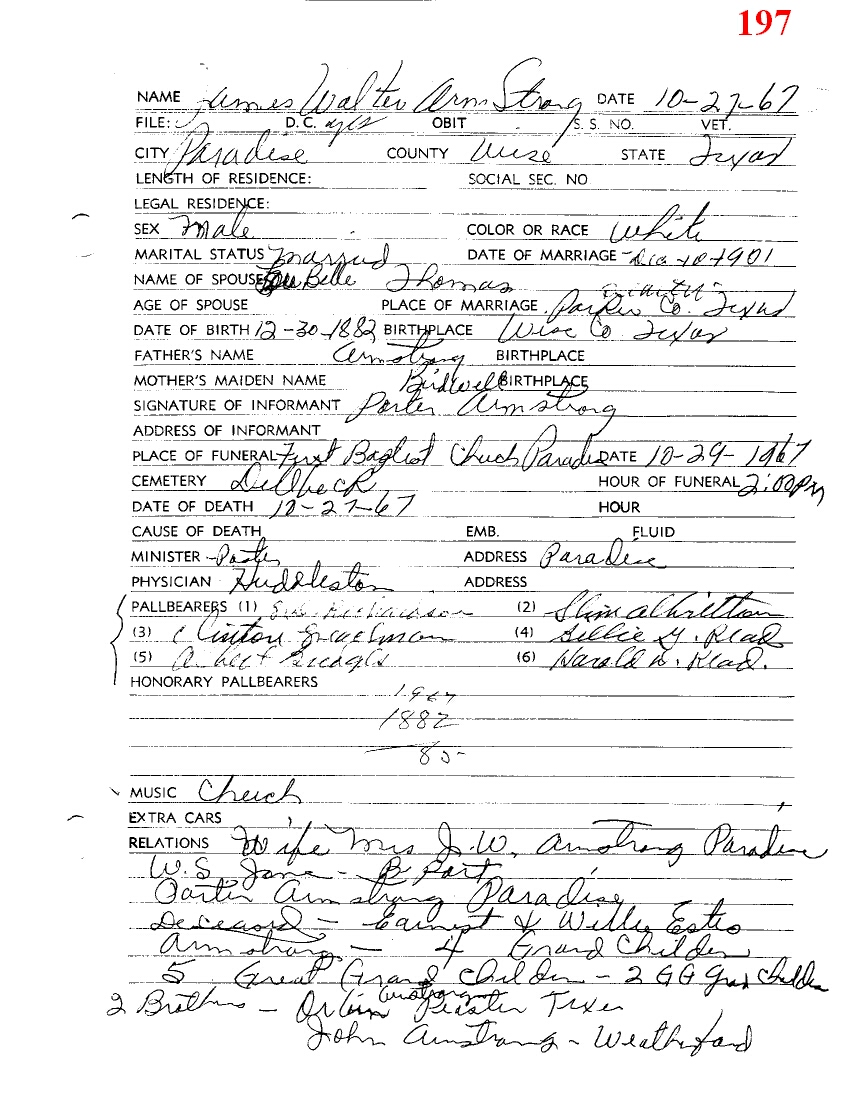 197
NAME James Walter ArmStrong DATE 10-27-67
FILE: D.C. OBIT S. S. NO. VET.
CITY Paradise COUNTY Wise STATE Texas
LENGTH OF RESIDENCE: SOCIAL SEC. NO
LEGAL RESIDENCE:
SEX Male COLOR OR RACE White
MARITAL STATUS Married DATE OF MARRIAGE 1901
NAME OF SPOUSE Belle Thomas
AGE OF SPOUSE PLACE OF MARRIAGE Parker Co. Texas
DATE OF BIRTH 12-30-1882 BIRTHPLACE Wise Co Texas
FATHER'S NAME Armstrong BIRTHPLACE
MOTHER'S MAIDEN NAME Birdwell BIRTHPLACE
SIGNATURE OF INFORMANT Porter Armstrong
ADDRESS OF INFORMANT
PLACE OF FUNERAL First Baptist Church Paradise DATE 10-29-1967
CEMETERY Dillbeck HOUR OF FUNERAL 2:00PM
DATE OF DEATH 10-27-67 HOUR
CAUSE OF DEATH EMB. FLUID
MINISTER ADDRESS Paradise
PHYSICIAN Huddleston ADDRESS
PALLBEARERS (1) Richardson (2) Slim
(3) Clinton (4) Billie G. Read
(5) Albert Bridges (6) Harold D. Read.
HONORARY PALLBEARERS
1967
1882
85
MUSIC Church
EXTRA CARS
RELATIONS Wife Mrs J.W. Armstrong Paradise
W.S.
Porter Armstrong Paradise
Deceased - Earnest & Willie Estes
Armstrong - 4 Grand Childen
5 Great Grand Childen - 2 GG Grand Childen
2 Brothers - Armstrong Peaster Texas
John Armstrong - Weatherford